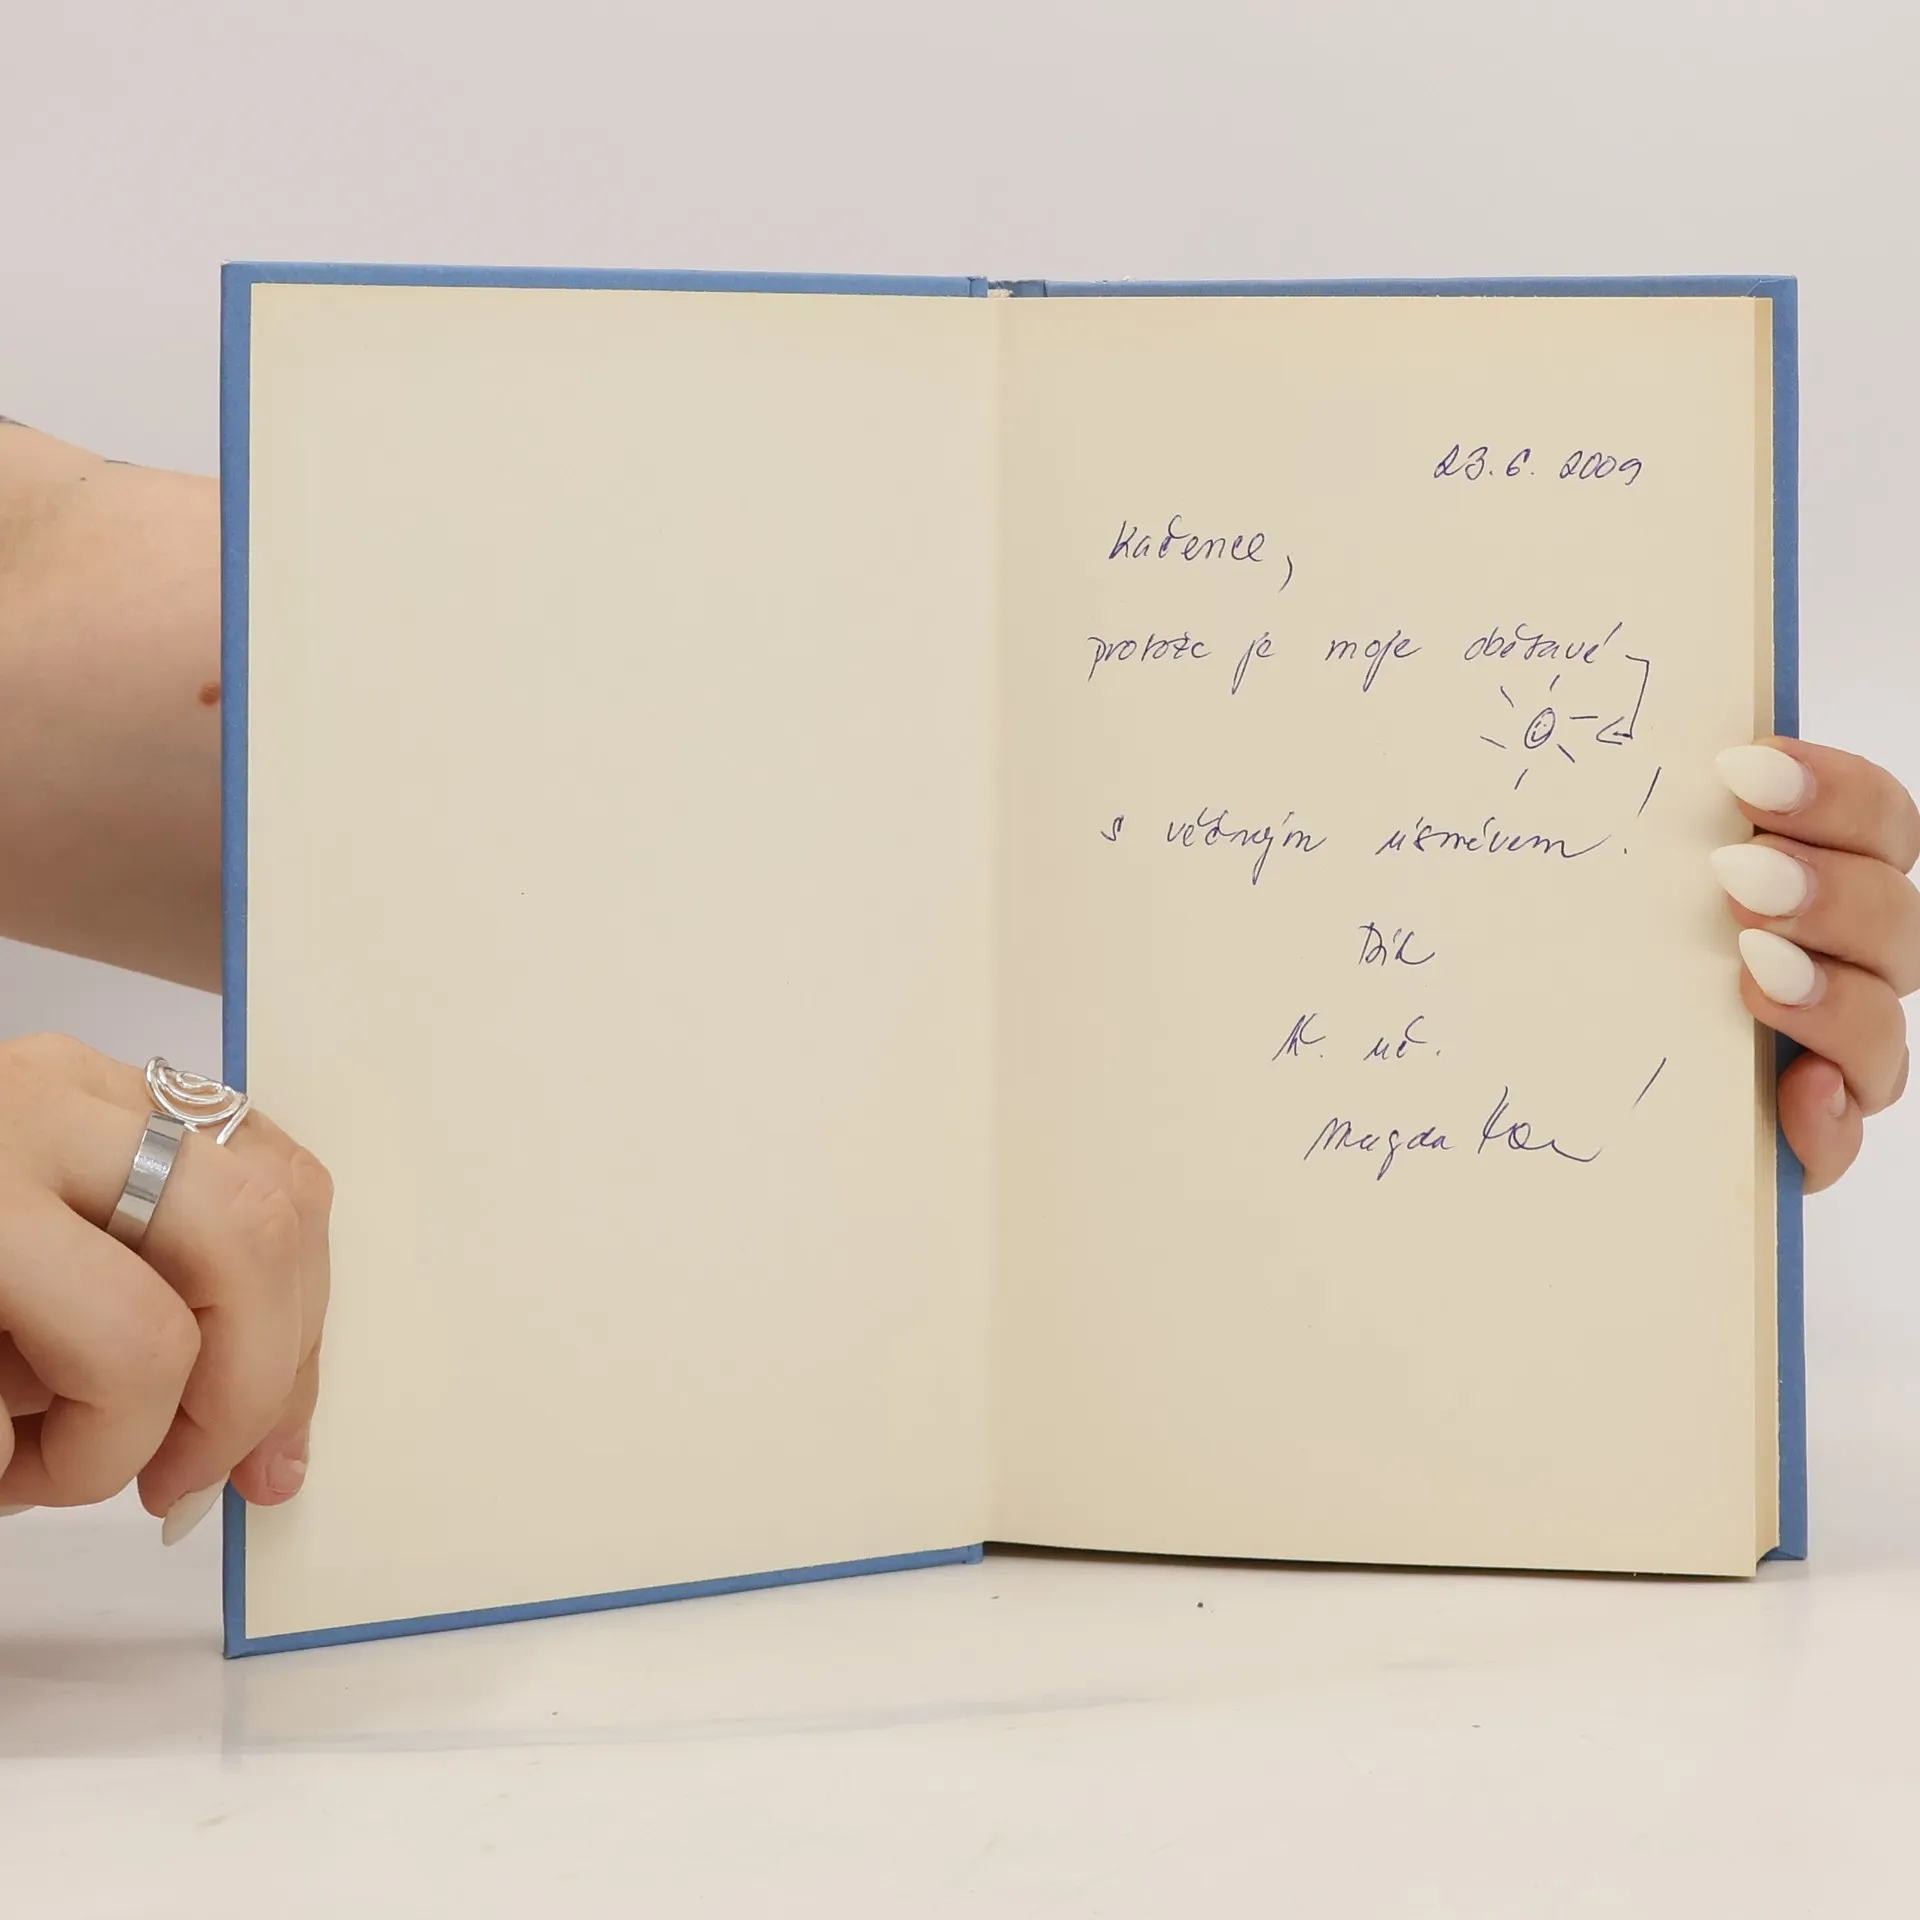 23. 6. 2009
Kačence,
protože je moje obětavé
s věčným úsměvem!
Tř. uč.
Magda